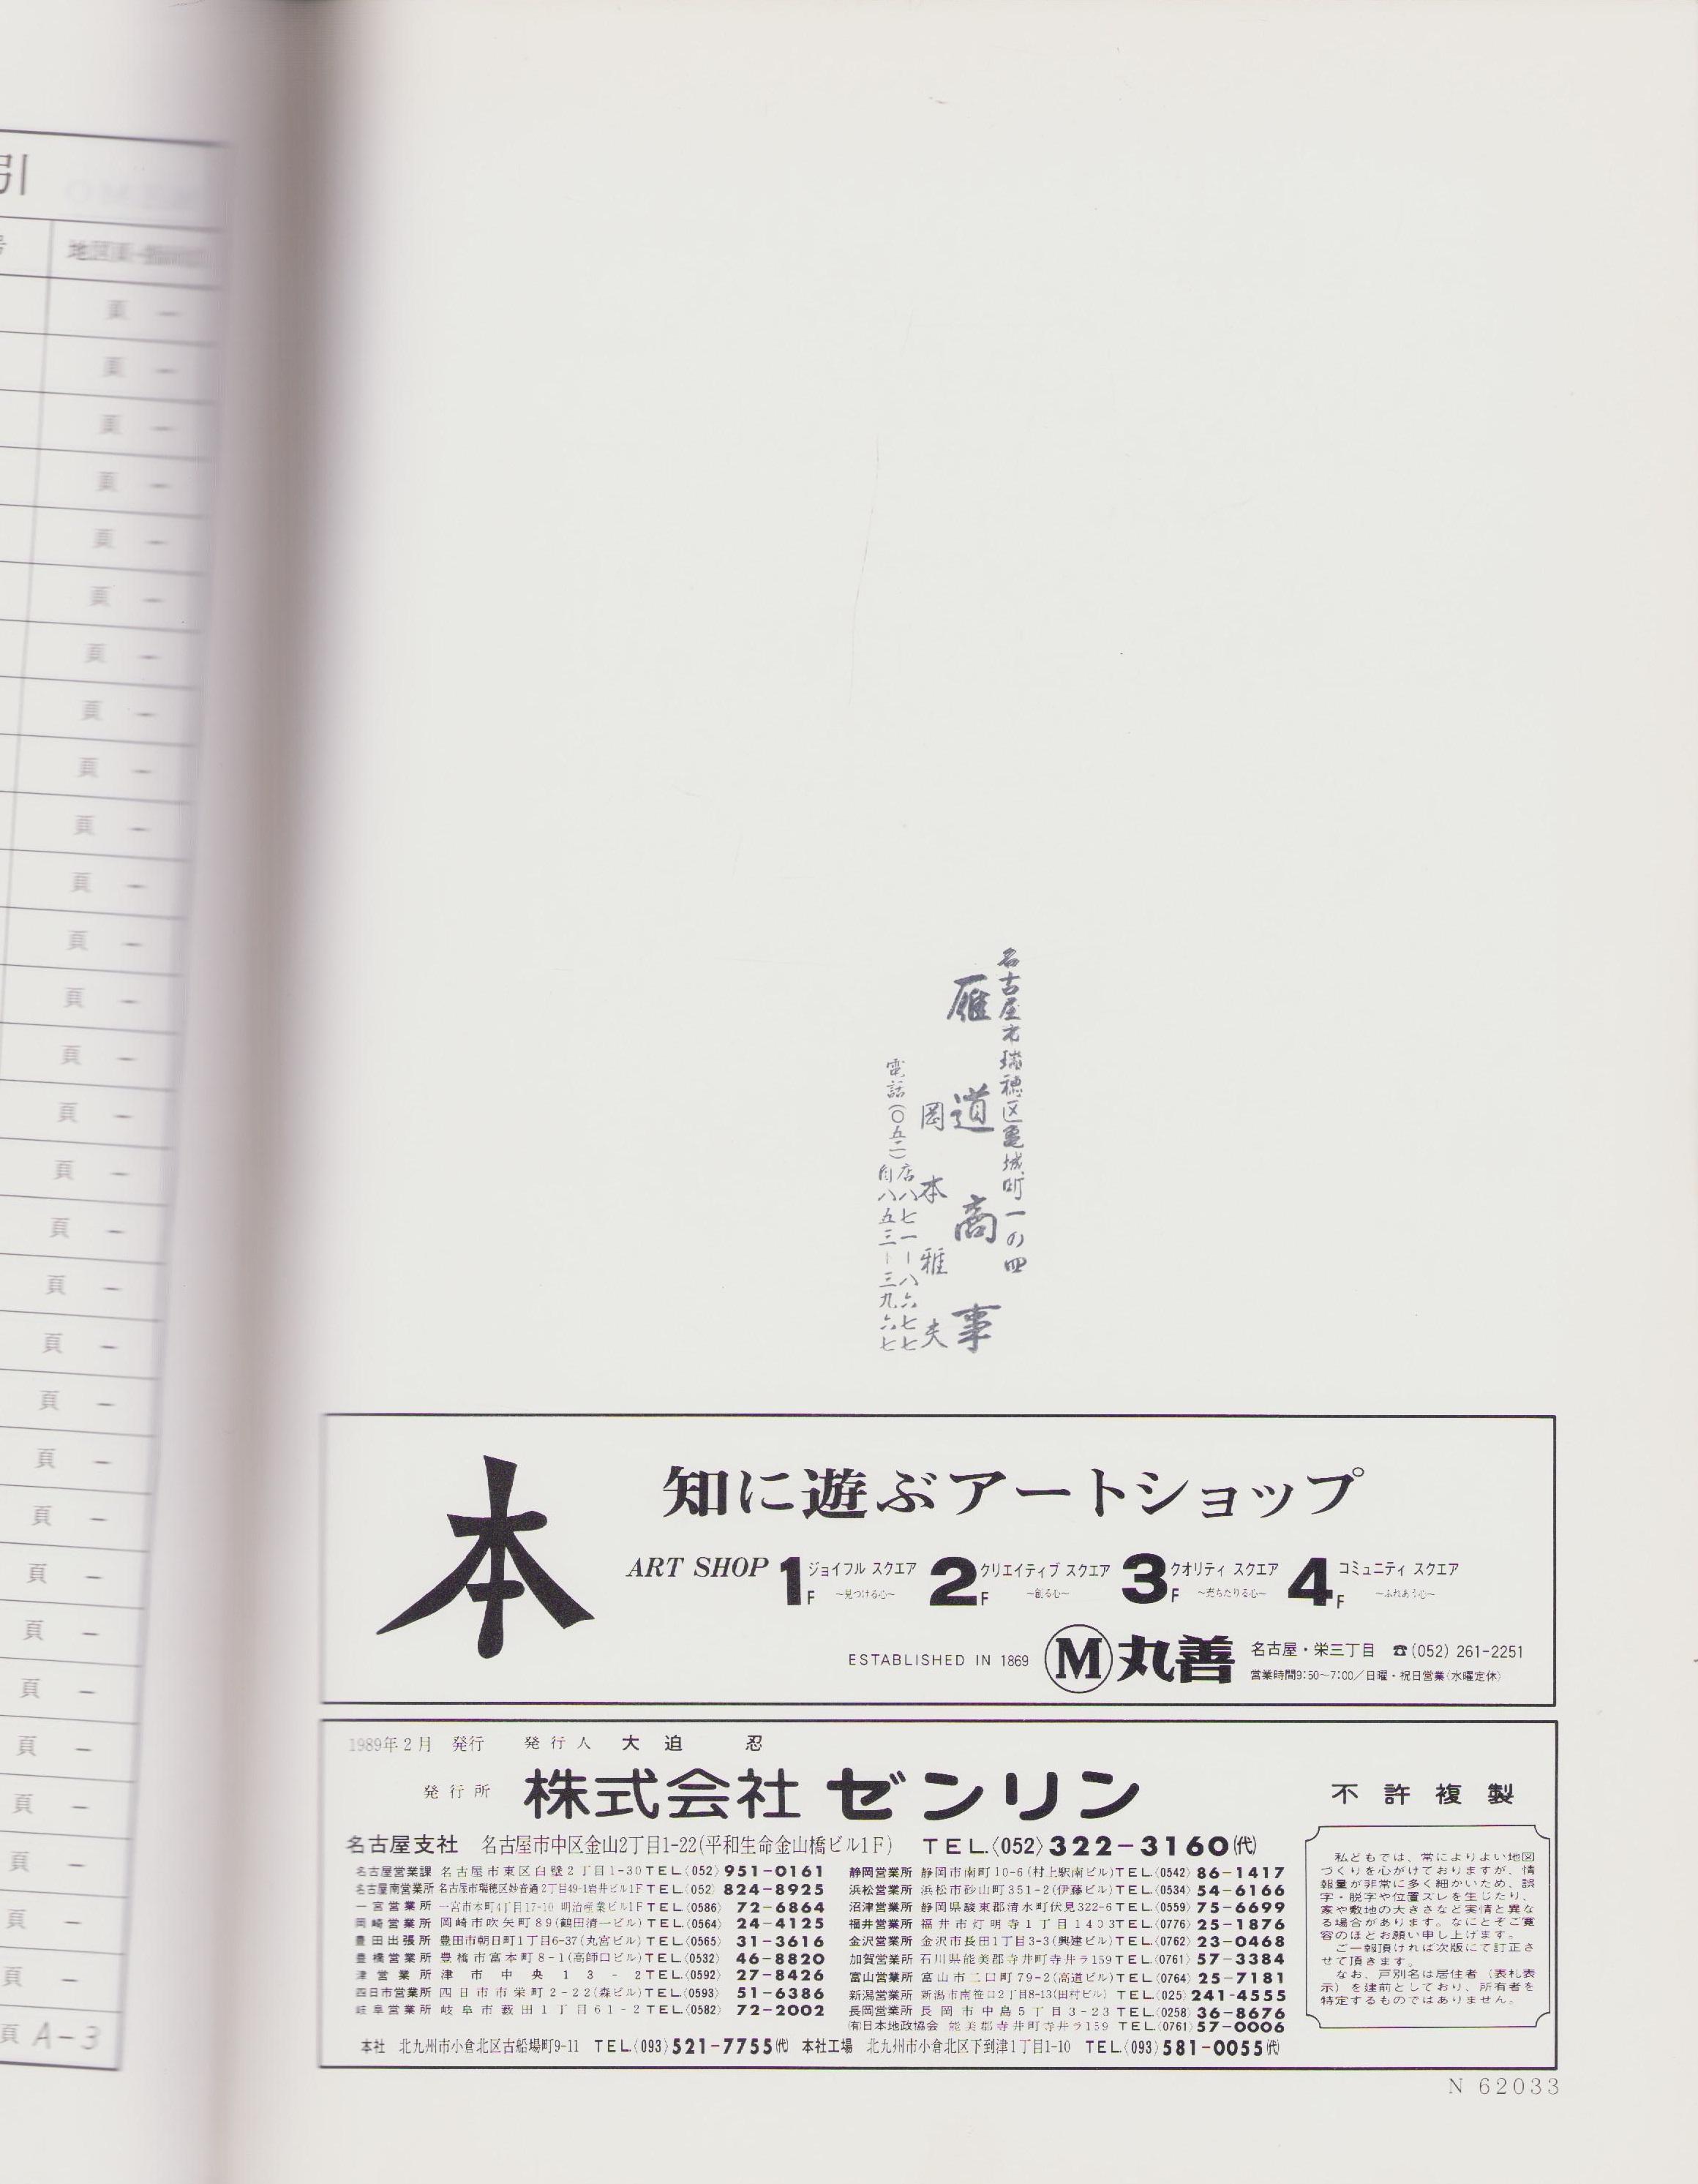 引
号
地区頁
頁 －
頁 －
頁 －
頁 －
頁 －
頁 －
頁 －
頁 －
頁 －
頁 －
頁 －
頁 －
頁 －
頁 －
頁 －
頁 －
頁 －
頁 －
頁 －
頁 －
頁 －
頁 －
頁 －
頁 －
頁 －
頁 －
頁 －
頁 －
頁 －
頁 －
頁 A-3
名古屋市瑞穂区亀城町一の四
雁道商事
岡本雅夫
電話(〇五二)
店八七一－八六七七
自八五三－三九六七
本
知に遊ぶアートショップ
ART SHOP 1F ジョイフル スクエア 2F クリエイティブ スクエア 3F クオリティ スクエア 4F コミュニティ スクエア
～見つける心～ ～創る心～ ～充ちたりる心～ ～ふれあう心～
ESTABLISHED IN 1869 M 丸善 名古屋・栄三丁目 ☎(052) 261-2251
営業時間9:50～7:00／日曜・祝日営業〈水曜定休〉
1989年2月 発行 発行人 大迫 忍
発行所 株式会社 ゼンリン
名古屋支社 名古屋市中区金山2丁目1-22(平和生命金山橋ビル1F) TEL.〈052〉322-3160(代)
名古屋営業課 名古屋市東区白壁2丁目1-30 TEL.〈052〉951-0161
名古屋南営業所 名古屋市瑞穂区妙音通2丁目49-1岩井ビル1F TEL.〈052〉824-8925
一宮営業所 一宮市本町4丁目17-10 明治産業ビル1F TEL.〈0586〉72-6864
岡崎営業所 岡崎市吹矢町89(鶴田清一ビル) TEL.〈0564〉24-4125
豊田出張所 豊田市朝日町1丁目6-37(丸宮ビル) TEL.〈0565〉31-3616
豊橋営業所 豊橋市富本町8-1(高師口ビル) TEL.〈0532〉46-8820
津営業所 津市中央13-2 TEL.〈0592〉27-8426
四日市営業所 四日市市栄町2-22(森ビル) TEL.〈0593〉51-6386
岐阜営業所 岐阜市薮田1丁目61-2 TEL.〈0582〉72-2002
静岡営業所 静岡市南町10-6(村上駅南ビル) TEL.〈0542〉86-1417
浜松営業所 浜松市砂山町351-2(伊藤ビル) TEL.〈0534〉54-6166
沼津営業所 静岡県駿東郡清水町伏見322-6 TEL.〈0559〉75-6699
福井営業所 福井市灯明寺1丁目1403 TEL.〈0776〉25-1876
金沢営業所 金沢市長田1丁目3-3(興建ビル) TEL.〈0762〉23-0468
加賀営業所 石川県能美郡寺井町寺井ラ159 TEL.〈0761〉57-3384
富山営業所 富山市二口町79-2(高道ビル) TEL.〈0764〉25-7181
新潟営業所 新潟市南笹口2丁目8-13(田村ビル) TEL.〈025〉241-4555
長岡営業所 長岡市中島5丁目3-23 TEL.〈0258〉36-8676
(有)日本地政協会 能美郡寺井町寺井ラ159 TEL.〈0761〉57-0006
本社 北九州市小倉北区古船場町9-11 TEL.〈093〉521-7755(代) 本社工場 北九州市小倉北区下到津1丁目1-10 TEL.〈093〉581-0055(代)
不許複製
私どもでは、常によりよい地図
づくりを心がけておりますが、情
報量が非常に多く細かいため、誤
字・脱字や位置ズレを生じたり、
家や敷地の大きさなど実情と異な
る場合があります。なにとぞご寛
容のほどお願い申し上げます。
ご一報頂ければ次版にて訂正さ
せて頂きます。
なお、戸別名は居住者（表札表
示）を建前としており、所有者を
特定するものではありません。
N 62033